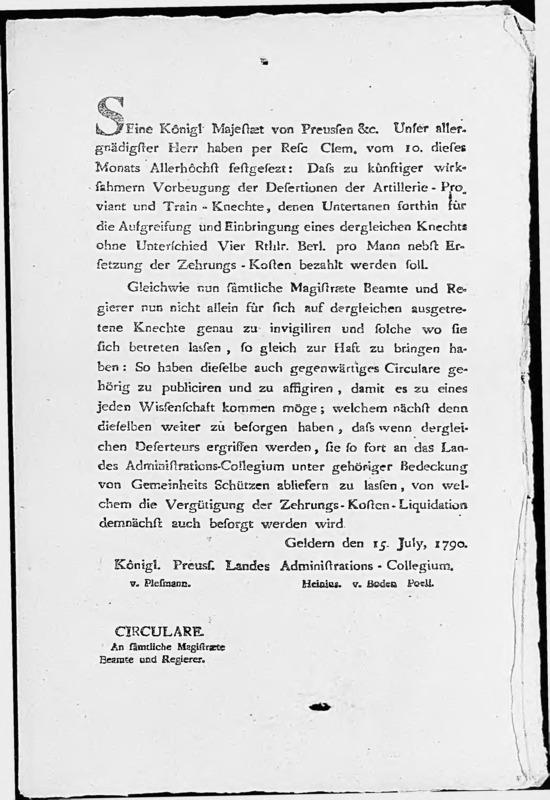 SEine Königl Majeſtæt von Preuſſen &c. Unſer aller-
gnädigſter Herr haben per Reſc Clem. vom 10. dieſes
Monats Allerhöchſt feſtgeſezt: Daſs zu künftiger wirk-
ſahmern Vorbeugung der Deſertionen der Artillerie - Pro-
viant und Train - Knechte, denen Untertanen forthin für
die Aufgreifung und Einbringung eines dergleichen Knechts
ohne Unterſchied Vier Rthlr. Berl. pro Mann nebſt Er-
ſetzung der Zehrungs - Koſten bezahlt werden ſoll.
Gleichwie nun ſämtliche Magiſtræte Beamte und Re-
gierer nun nicht allein für ſich auf dergleichen ausgetre-
tene Knechte genau zu invigiliren und ſolche wo ſie
ſich betreten laſſen, ſo gleich zur Haft zu bringen ha-
ben: So haben dieſelbe auch gegenwärtiges Circulare ge-
hörig zu publiciren und zu affigiren, damit es zu eines
jeden Wiſſenſchaft kommen möge; welchem nächſt denn
dieſelben weiter zu beſorgen haben, daſs wenn derglei-
chen Deſerteurs ergriffen werden, ſie ſo fort an das Lan-
des Adminiſtrations-Collegium unter gehöriger Bedeckung
von Gemeinheits Schützen abliefern zu laſſen, von wel-
chem die Vergütigung der Zehrungs-Koſten-Liquidation
demnächſt auch beſorgt werden wird
Geldern den 15. July, 1790.
Königl. Preuſſ. Landes Adminiſtrations - Collegium.
v. Pleſmann. Heinius. v. Boden Poell.
CIRCULARE.
An ſämtliche Magiſtræte
Beamte und Regierer.